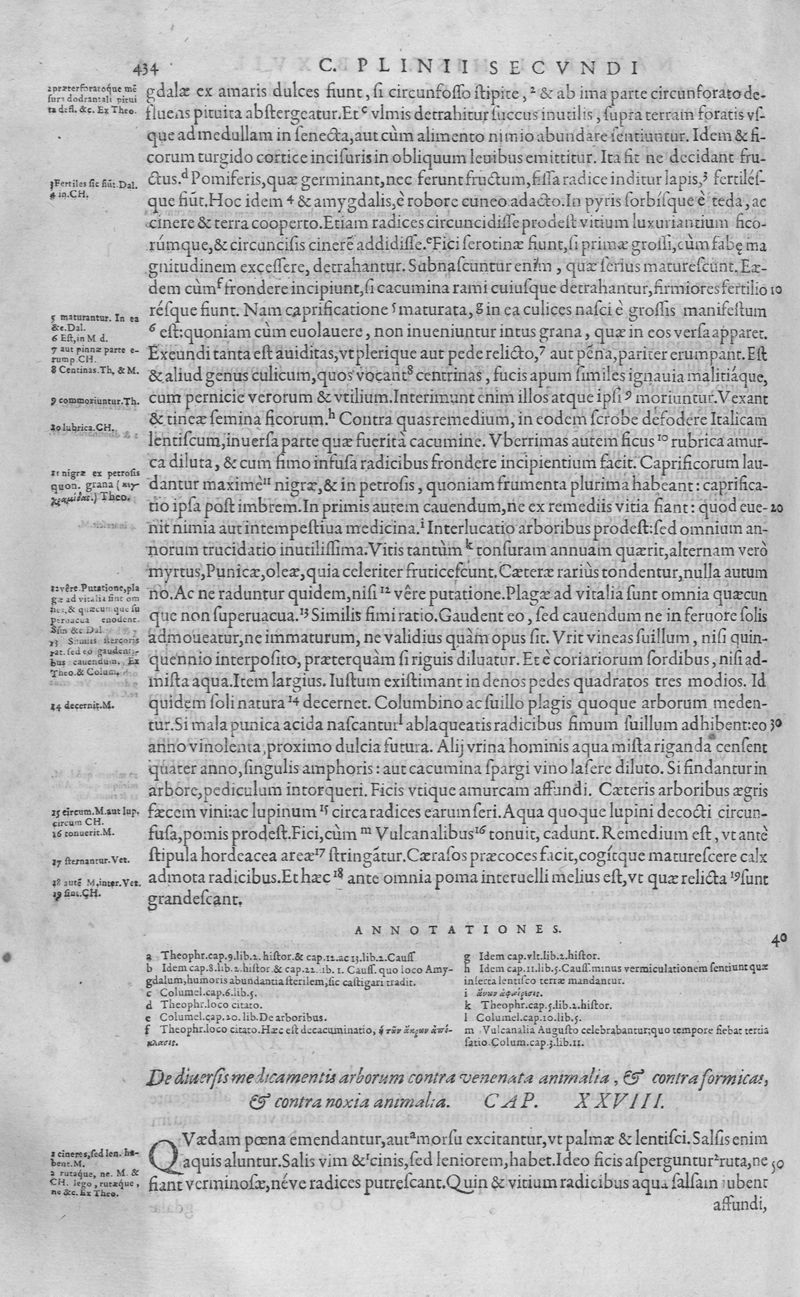 434
C. PLINII SECVNDI
gdalæ ex amaris dulces fiunt, ſi circunfoſſo ſtipite, ² & ab ima parte circunforato de-
fluens pituita abſtergeatur. Et ᶜ vlmis detrahitur ſuccus inutilis, ſupra terram foratis vſ-
que ad medullam in ſenecta, aut cùm alimento nimio abundare ſentiuntur. Idem & fi-
corum turgido cortice inciſuris in obliquum leuibus emittitur. Ita fit ne decidant fru-
ctus. ᵈ Pomiferis, quæ germinant, nec ferunt fructum, fiſſa radice inditur lapis, ³ fertiléſ-
que fiũt. Hoc idem ⁴ & amygdalis, è robore cuneo adacto. In pyris ſorbíſque è teda, ac
cinere & terra cooperto. Etiam radices circuncidiſſe prodeſt vitium luxuriantium fico-
rúmque, & circunciſis cinerẽ addidiſſe. ᵉ Fici ſerotinæ fiunt, ſi primæ groſſi, cùm fabę ma
gnitudinem exceſſere, detrahantur. Subnaſcuntur enim, quæ ſerius matureſcunt. Eæ-
dem cùm ᶠ frondere incipiunt, ſi cacumina rami cuiuſque detrahantur, firmiores fertilio 10
réſque fiunt. Nam caprificatione ⁵ maturata, ᵍ in ea culices naſci è groſſis manifeſtum
⁶ eſt: quoniam cùm euolauere, non inueniuntur intus grana, quæ in eos verſa apparet.
Exeundi tanta eſt auiditas, vt plerique aut pede relicto, ⁷ aut pẽna, pariter erumpant. Eſt
& aliud genus culicum, quos vocant ⁸ centrinas, fucis apum ſimiles ignauia malitiáque,
cum pernicie verorum & vtilium. Interimunt enim illos atque ipſi ⁹ moriuntur. Vexant
& tineæ ſemina ficorum. ʰ Contra quas remedium, in eodem ſcrobe defodere Italicam
lentiſcum, inuerſa parte quæ fuerit à cacumine. Vberrimas autem ficus ¹⁰ rubrica amur-
ca diluta, & cum fimo infuſa radicibus frondere incipientium facit. Caprificorum lau-
dantur maximè ¹¹ nigræ, & in petroſis, quoniam frumenta plurima habeant: caprifica-
tio ipſa poſt imbrem. In primis autem cauendum, ne ex remediis vitia fiant: quod eue- 20
nit nimia aut intempeſtiua medicina. ⁱ Interlucatio arboribus prodeſt: ſed omnium an-
norum trucidatio inutiliſſima. Vitis tantùm ᵏ tonſuram annuam quærit, alternam verò
myrtus, Punicæ, oleæ, quia celeriter fruticeſcunt. Cæteræ rariùs tondentur, nulla autum
no. Ac ne raduntur quidem, niſi ¹² vêre putatione. Plagæ ad vitalia ſunt omnia quæcun
que non ſuperuacua. ¹³ Similis fimi ratio. Gaudent eo, ſed cauendum ne in feruore ſolis
admoueatur, ne immaturum, ne validius quàm opus ſit. Vrit vineas ſuillum, niſi quin-
quennio interpoſito, præterquàm ſi riguis diluatur. Et è coriariorum ſordibus, niſi ad-
miſta aqua. Item largius. Iuſtum exiſtimant in denos pedes quadratos tres modios. Id
quidem ſoli natura ¹⁴ decernet. Columbino ac ſuillo plagis quoque arborum meden-
tur. Si mala punica acida naſcantur ˡ ablaqueatis radicibus fimum ſuillum adhibent: eo 30
anno vinolenta, proximo dulcia futura. Alij vrina hominis aqua miſta riganda cenſent
quater anno, ſingulis amphoris: aut cacumina ſpargi vino laſere diluto. Si findantur in
arbore, pediculum intorqueri. Ficis vtique amurcam affundi. Cæteris arboribus ægris
fæcem vini: ac lupinum ¹⁵ circa radices earum ſeri. Aqua quoque lupini decocti circun-
fuſa, pomis prodeſt. Fici, cùm ᵐ Vulcanalibus ¹⁶ tonuit, cadunt. Remedium eſt, vt antè
ſtipula hordeacea areæ ¹⁷ ſtringátur. Cæraſos præcoces facit, cogítque matureſcere calx
admota radicibus. Et hæc ¹⁸ ante omnia poma interuelli melius eſt, vt quæ relicta ¹⁹ ſunt
grandeſcant.
2 præterforatoque mẽ
ſuri dodrantali pitui
ta defl. &c. Ex Theo.
3 Fertiles ſic fiũt. Dal.
4 in. CH.
5 maturantur. In ea
&c. Dal.
6 Eſt, in M d.
7 aut pinnæ parte e-
rump. CH.
8 Centinas. Th, & M.
9 commoriuntur. Th.
10 lubrica. CH.
11 nigræ ex petroſis
quon. grana
Theo.
12 vêre. Putatione, pla
gæ ad vitalia ſint om
nes, & quæcunque ſu
peruacua enodent.
Sim &c Dal
13 Similis ſtercoris
rat. ſed eo gaudent:
bus cauendum. Ex
Theo. & Colum.
14 decernit. M.
15 circum. M. aut lup.
circum CH.
16 tonuerit. M.
17 ſternantur. Vet.
18 autẽ M. inter. Vet.
19 ſint. CH.
ANNOTATIONES.
40
a Theophr. cap. 9. lib. 2. hiſtor. & cap. 12. ac 13. lib. 2. Cauſſ.
b Idem cap. 8. lib. 2. hiſtor. & cap. 22. lib. 1. Cauſſ. quo loco Amy-
gdalum, humoris abundantia ſterilem, ſic caſtigari tradit.
c Columel. cap. 6. lib. 5.
d Theophr. loco citato.
e Columel. cap. 20. lib. De arboribus.
f Theophr. loco citato. Hæc eſt decacuminatio, ἡ τῶν ἄκρων ἀπό-
κλασις.
g Idem cap. vlt. lib. 2. hiſtor.
h Idem cap. 11. lib. 5. Cauſſ. minus vermiculationem ſentiunt quæ
inſerta lentiſco terræ mandantur.
i
k Theophr. cap. 5. lib. 2. hiſtor.
l Columel. cap. 10. lib. 5.
m Vulcanalia Auguſto celebrabantur; quo tempore fiebat tertia
ſatio. Colum. cap. 3. lib. 11.
De diuerſis medicamentis arborum contra venenata animalia, & contra formicas,
& contra noxia animalia. CAP. XXVIII.
Quædam pœna emendantur, aut ᵃ morſu excitantur, vt palmæ & lentiſci. Salſis enim
aquis aluntur. Salis vim & ¹ cinis, ſed leniorem, habet. Ideo ficis aſperguntur ² ruta, ne 50
fiant verminoſæ, néve radices putreſcant. Quin & vitium radicibus aqua ſalſam iubent
affundi,
1 cineres, ſed len. ha-
bent. M.
2 rutaque, ne. M. &
CH. lego, rutæque,
ne &c. Ex Theo.